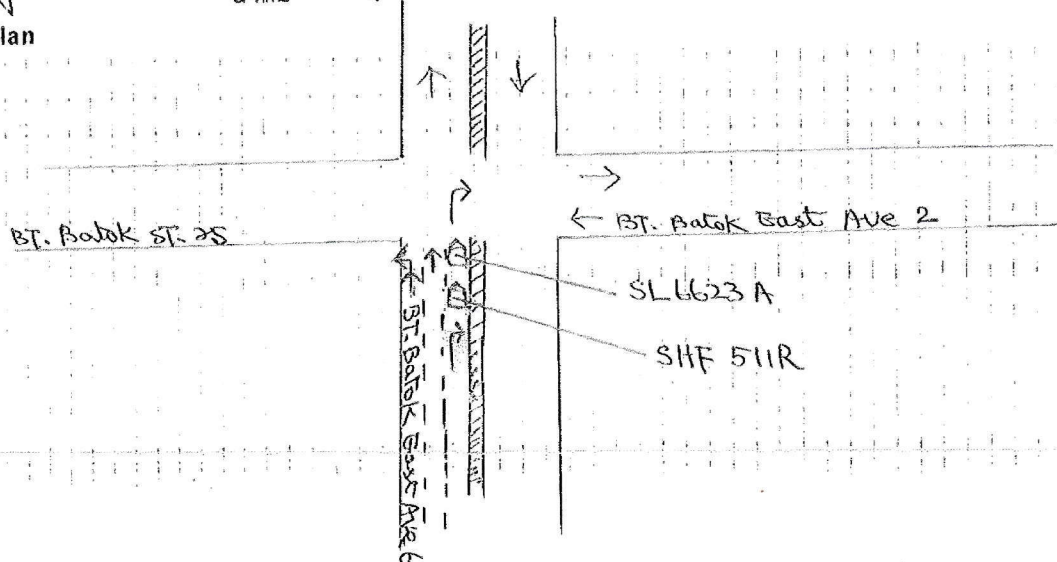 lan
BT. Batok ST. 25
← BT. Batok East Ave 2
SL6623A
SHF 511R
BT. Batok East Ave 6